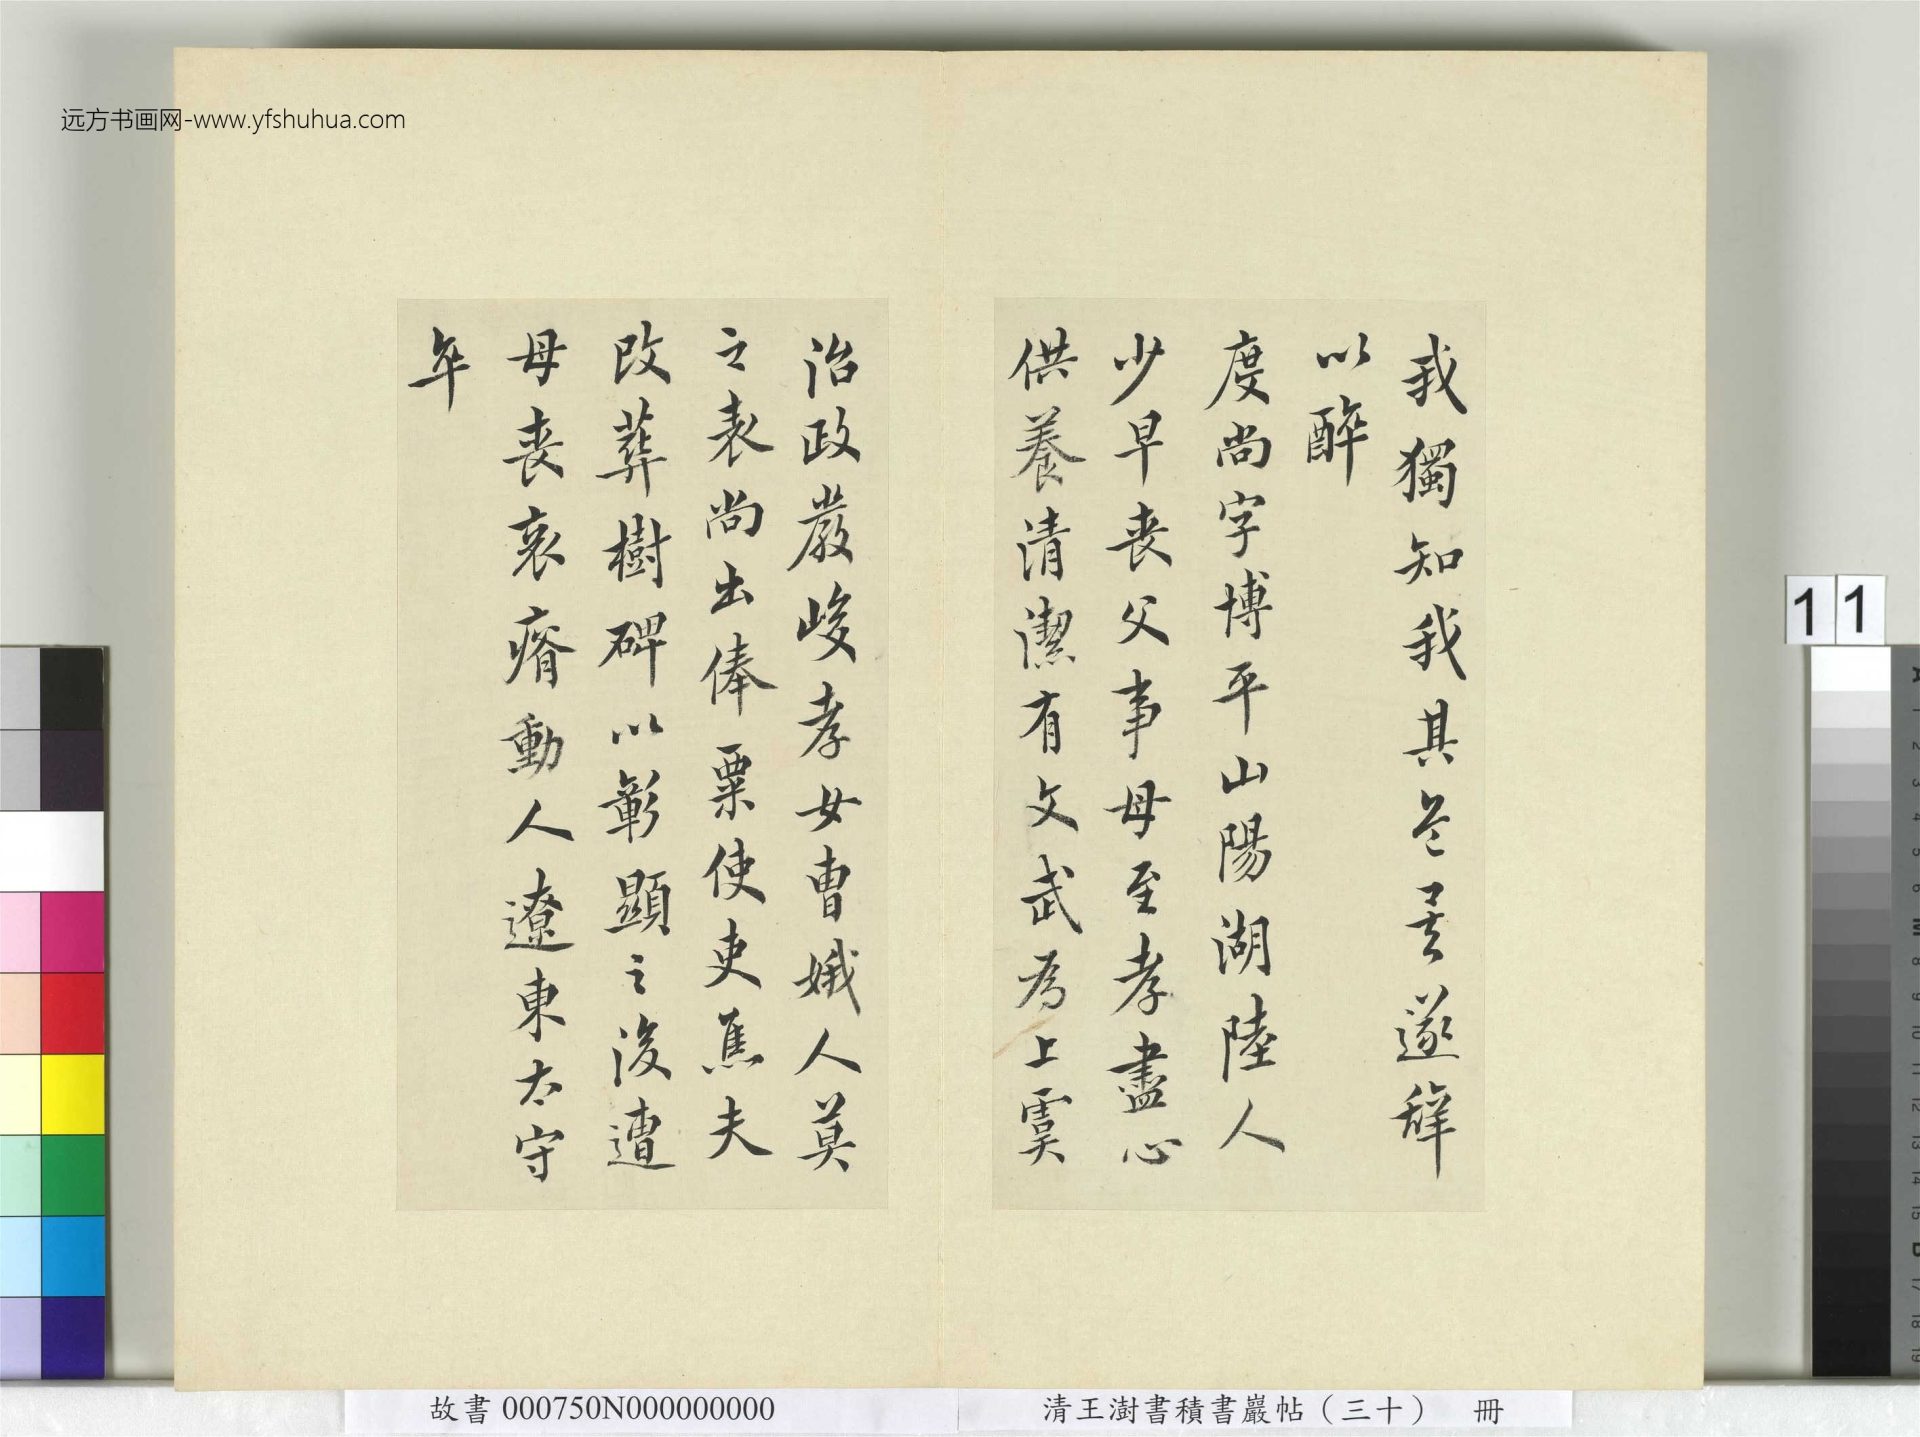 远方书画网-www.yfshuhua.com
我獨知我其答景遂辭
以醉
度尚字博平山陽湖陸人
少早丧父事母至孝盡心
供養清潔有文武為上虞
治政嚴峻孝女曹娥人莫
之表尚出俸粟使吏焦夫
改葬樹碑以彰顯之後遭
母丧哀瘠動人遼東太守
卒
11
故書 000750N000000000
清王澍書積書巖帖（三十） 冊